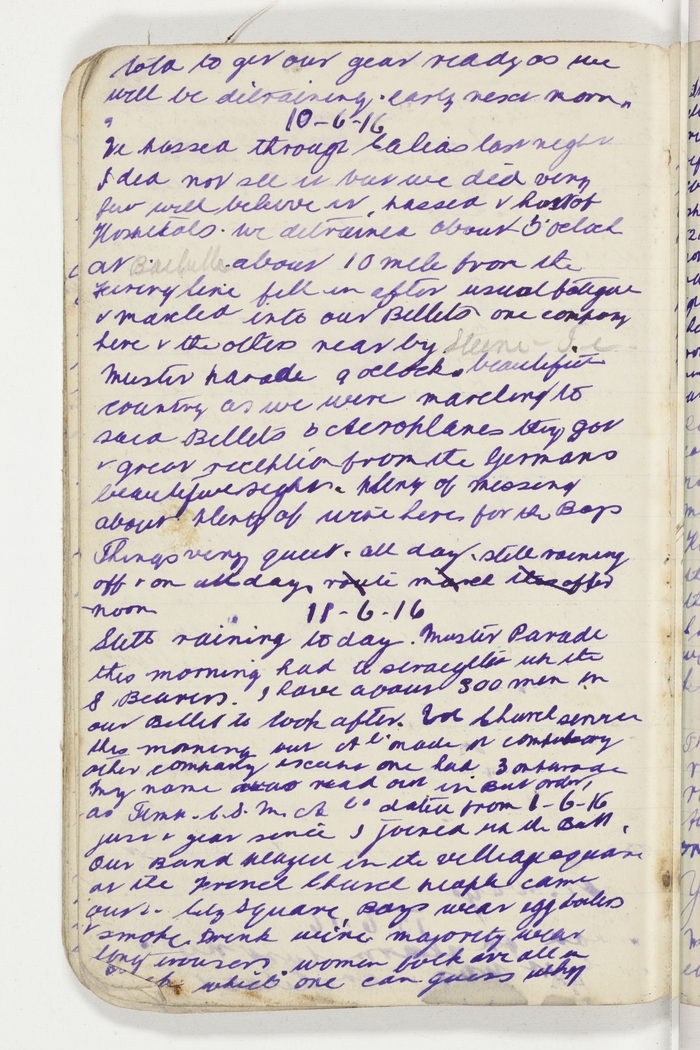 told to get our gear ready as we
will be detraining early next morn"
10-6-16
We passed through Calias last night
I did not see it but we did very
few will believe it, passed a host of
Hospitals. we detrained about 5 oclock
at about 10 mile from the
Fireing line fell in after usual fatigue
& marched into our Billets one company
here & the others near by
Muster parade 9 oclock beautiful
country as we were marching to
said Billets Aeroplanes they got
a great reception from the Germans
beautiful sight. plenty of missing
about plenty of wine here for the Boys
Things very quiet all day. still raining
off & on all day route march
noon
11-6-16
Still raining today. Muster Parade
this morning had to straighten up the
S Bearers. I have about 300 men in
our Billet to look after. Vol Church service
this morning our A Co made it compulsory
other company excuse one had 3 on parade
My name read out in Batt order,
as Temp. C.S.M. A Co dated from 1-6-16
just a year since I joined up the Batt.
Our Band played in the village square
as the French Church people came
out. Square, Boys wear egg boilers
smoke drink wine majority wear
long trousers women
which one can guess why